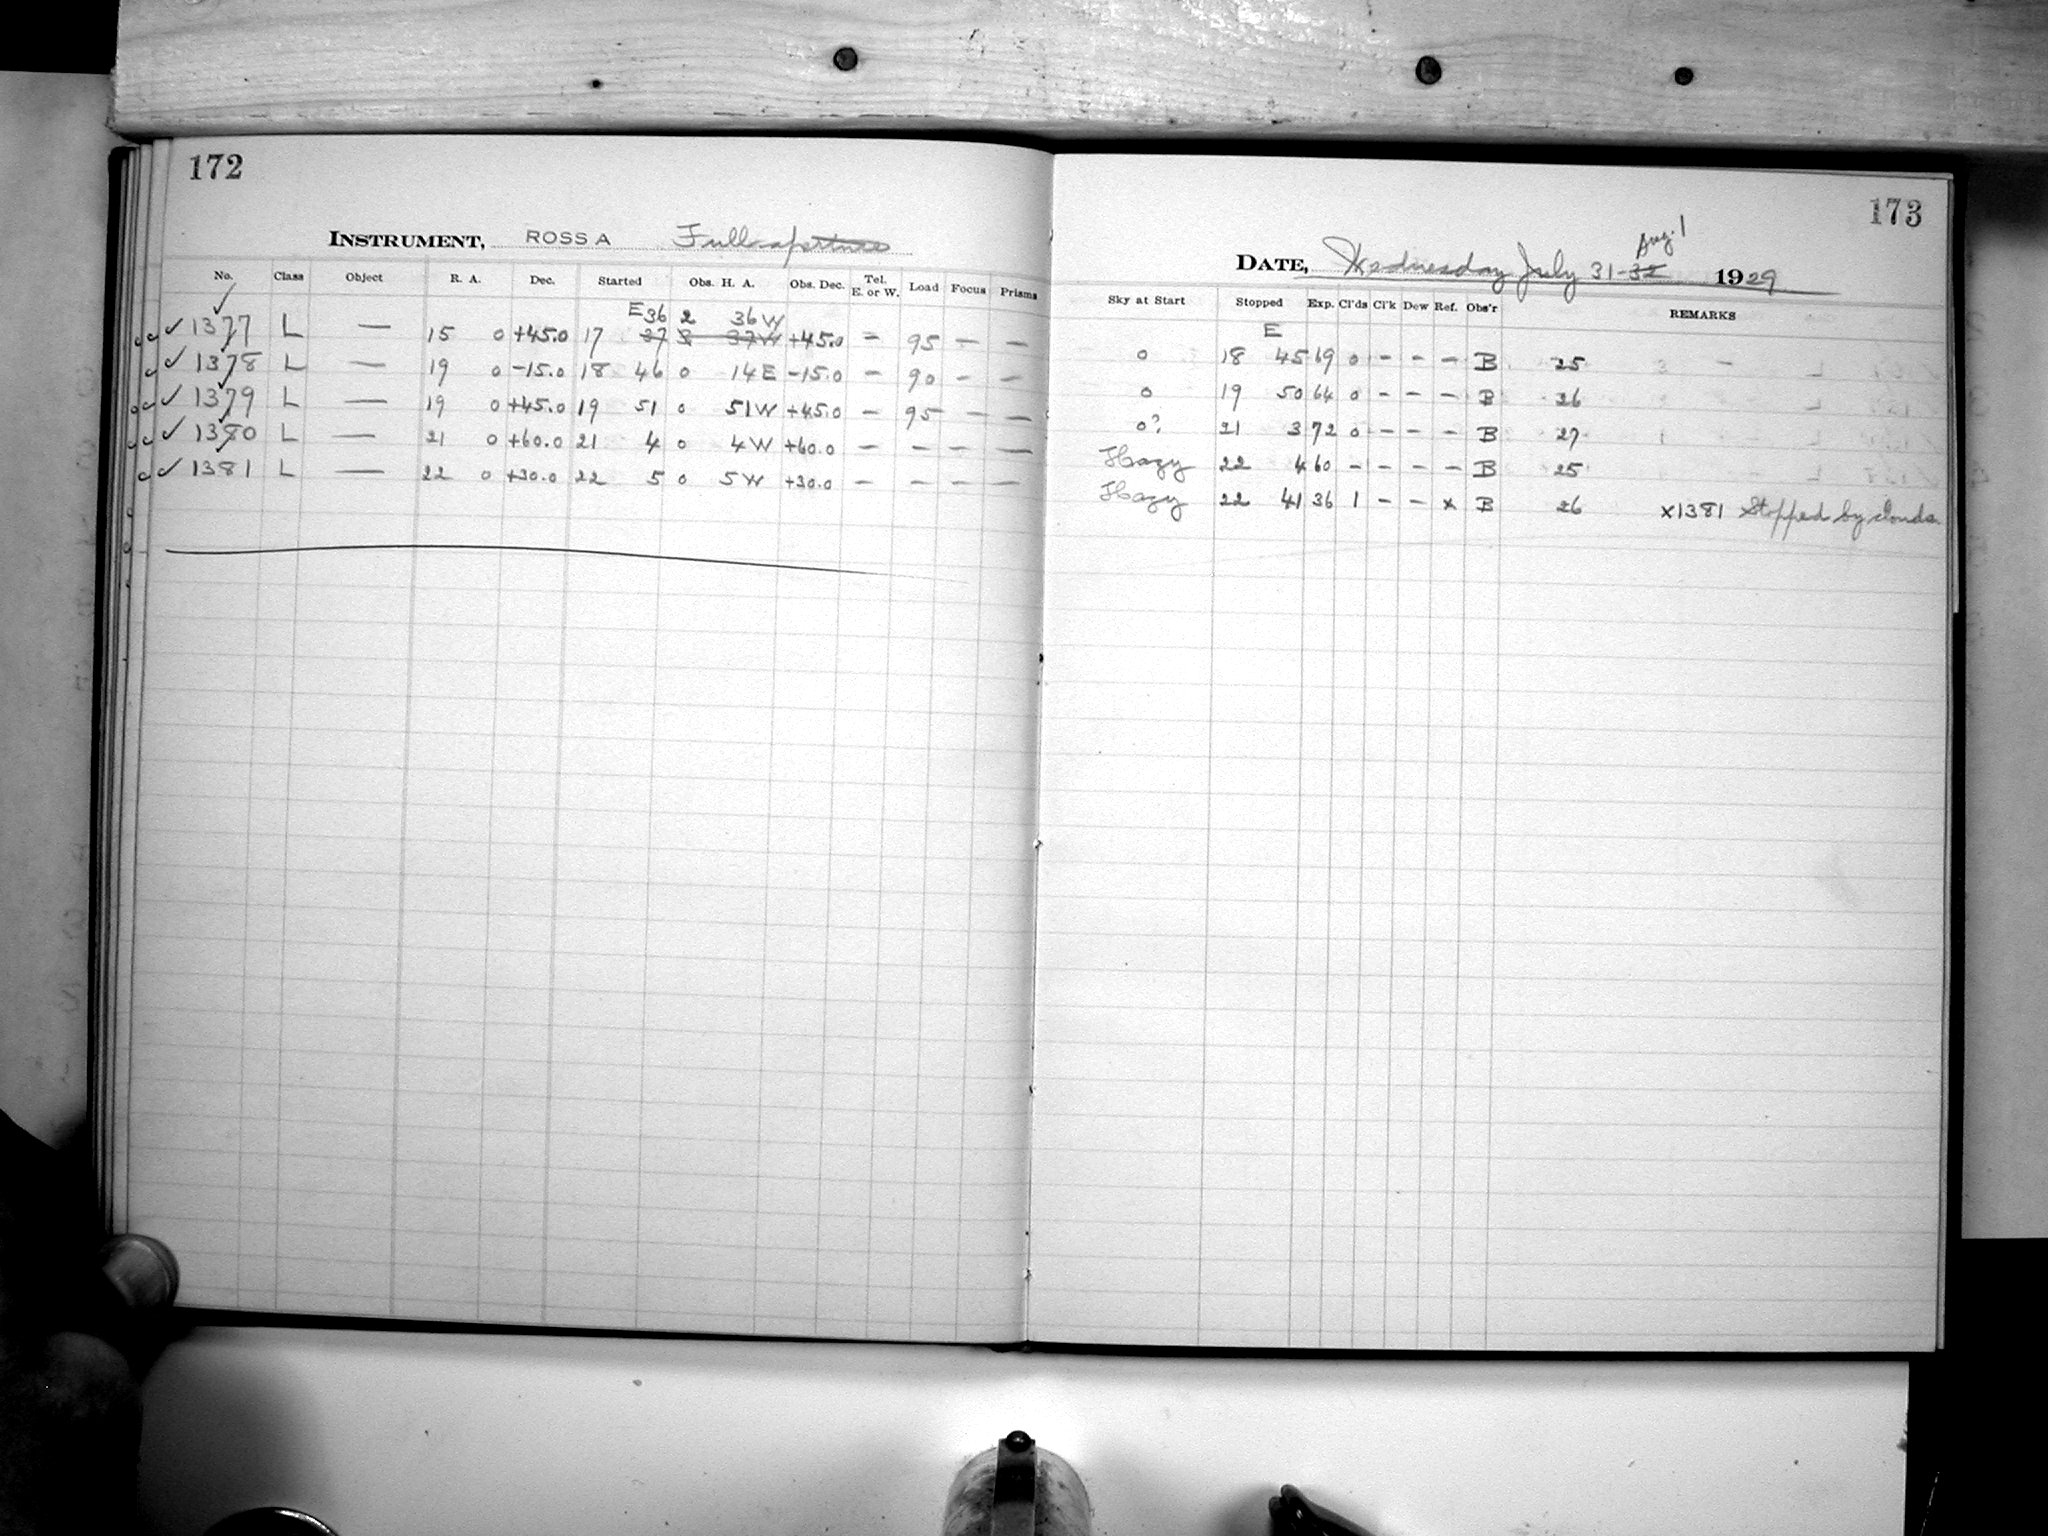 172
INSTRUMENT, ROSS A Full aperture
No. Class Object R. A. Dec. Started Obs. H. A. Obs. Dec. Tel. E. or W. Load Focus Prisms
E 36 2 36 W
✓ 1377 L — 15 0 +45.0 17 37 2 37 W +45.0 — 95 — —
✓ 1378 L — 19 0 -15.0 18 46 0 14 E -15.0 — 90 — —
✓ 1379 L — 19 0 +45.0 19 51 0 51 W +45.0 — 95 — —
✓ 1380 L — 21 0 +60.0 21 4 0 4 W +60.0 — — — —
✓ 1381 L — 22 0 +30.0 22 5 0 5 W +30.0 — — — —
173
Aug. 1
DATE, Wednesday July 31-32 1929
Sky at Start Stopped Exp. Cl'ds Cl'k Dew Ref. Obs'r REMARKS
E
0 18 45 69 0 — — — B 25
0 19 50 64 0 — — — B 26
0? 21 3 72 0 — — — B 27
Hazy 22 4 60 — — — — B 25
Hazy 22 41 36 1 — — x B 26 x1381 Stopped by clouds.